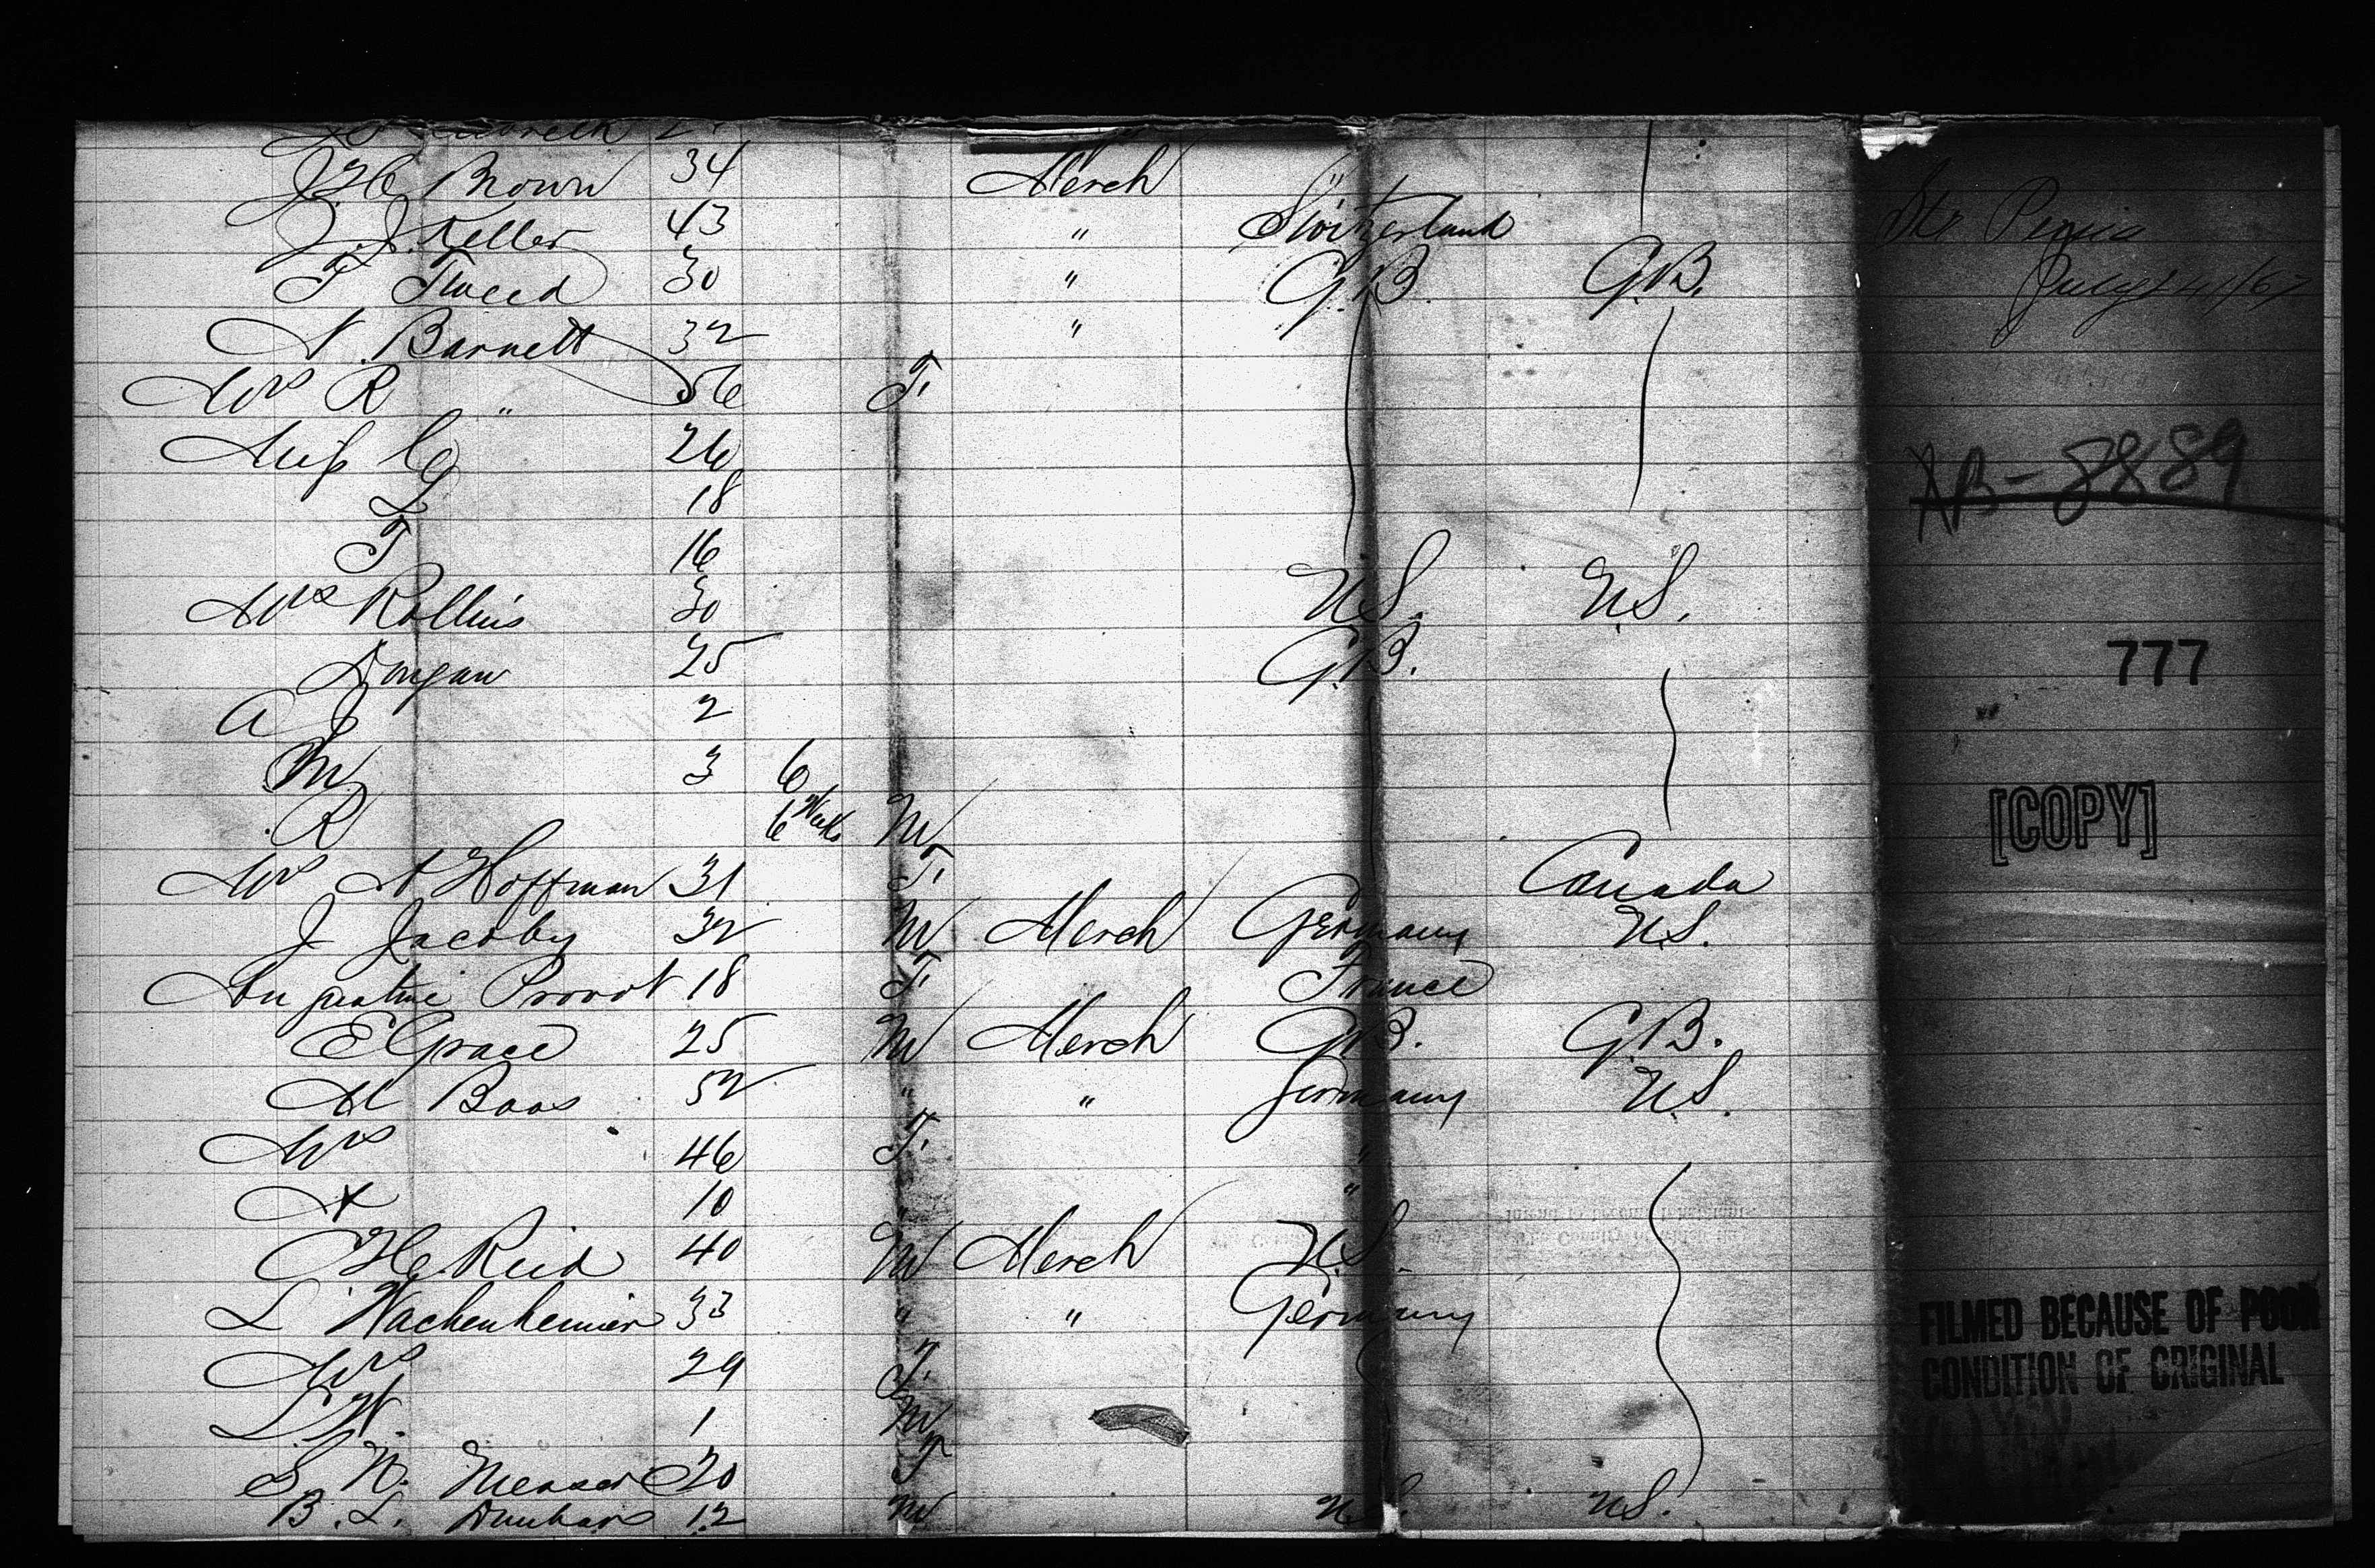 J. H. Brown 34 Merch "
J. J. Keller 43 " Switzerland
T Tweed 30 " G.B. G.B.
A. Barnett 32 "
Mrs R " 56 F.
Miss C 26
L 18
F 16
Mrs Rollins 30 U.S. U.S.
Dongan 25 G.B.
A J 2
M 3 6
R 6 Weeks M
Mrs A Hoffman 31 F. Canada
J Jacoby 32 M Merch Germany U.S.
Augustine Provot 18 F. France
E Grace 25 M Merch G.B. G.B.
M Baas 52 " " Germany U.S.
Mrs 46 F. "
A 10 " "
C H Reid 40 M Merch U.S.
L Wachenheimer 33 " " Germany
Mrs 29 F.
L. W. 1 M
S. N. 20 F
B. L. Dunham 12 M U.S. U.S.
Str Persia
July 24/67
XB-8889
777
"
[COPY]
FILMED BECAUSE OF POOR
CONDITION OF ORIGINAL